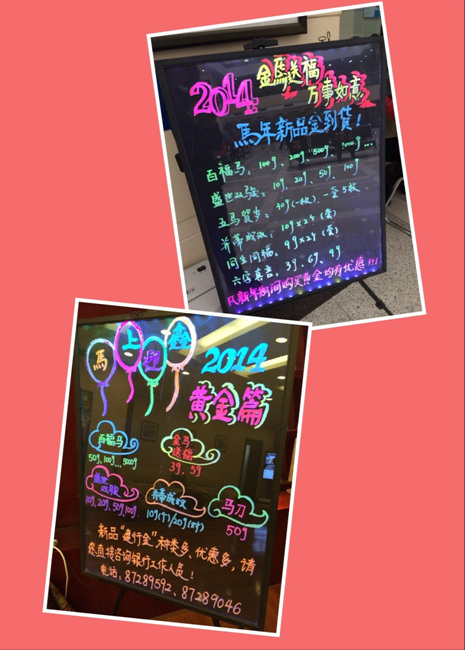 2014
金馬送福
万事如意
馬年新品金到貨！
百福马：100g、200g、500g、1000g...
盛世双骏：10g、20g、50g、100g
五马贺岁：30g(一枚)、一套5枚
并蒂成双：10g×2个(套)
同生同福：9g×2个(套)
六字真言：3g、6g、9g
凡新年期间购买黄金均有优惠!!!
馬上
2014
黄金篇
百福马
50g、100g...5000g
金马送福
3g、5g
盛世双骏
10g、20g、50g、100g
并蒂成双
10g(个)/20g(对)
马刀
50g
新品“建行金”种类多、优惠多，请
您直接咨询银行工作人员！
电话：87289592、87289046